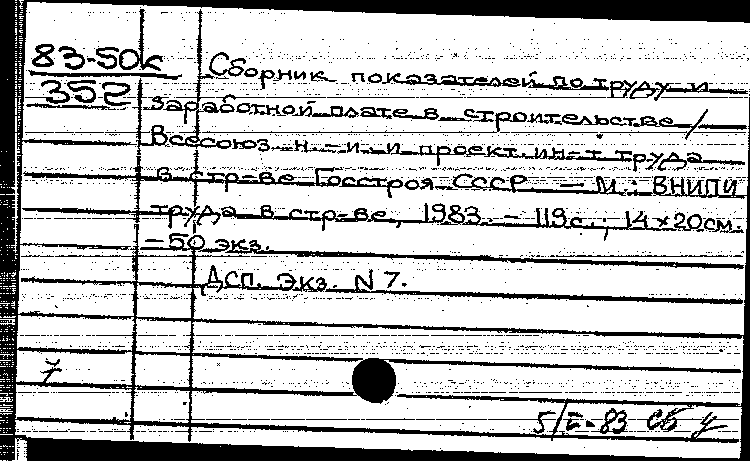 83-50к
352
Сборник показателей по труду и
заработной плате в строительстве /
Всесоюз. н.-и. и проект. ин-т труда
в стр-ве Госстроя СССР. — М.: ВНИПИ
труда в стр-ве, 1983. - 119 с.; 14×20 см.
- 50 экз.
ДСП. Экз. N 7.
7
5/I-83 СБ